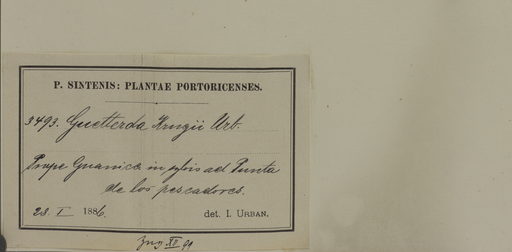 P. SINTENIS: PLANTAE PORTORICENSES.
3493. Guetterda Krugii Urb.
Prope Guanica in sylvis ad Punta
de los pescadores.
23. I 1886. det. I. URBAN.
XII 90